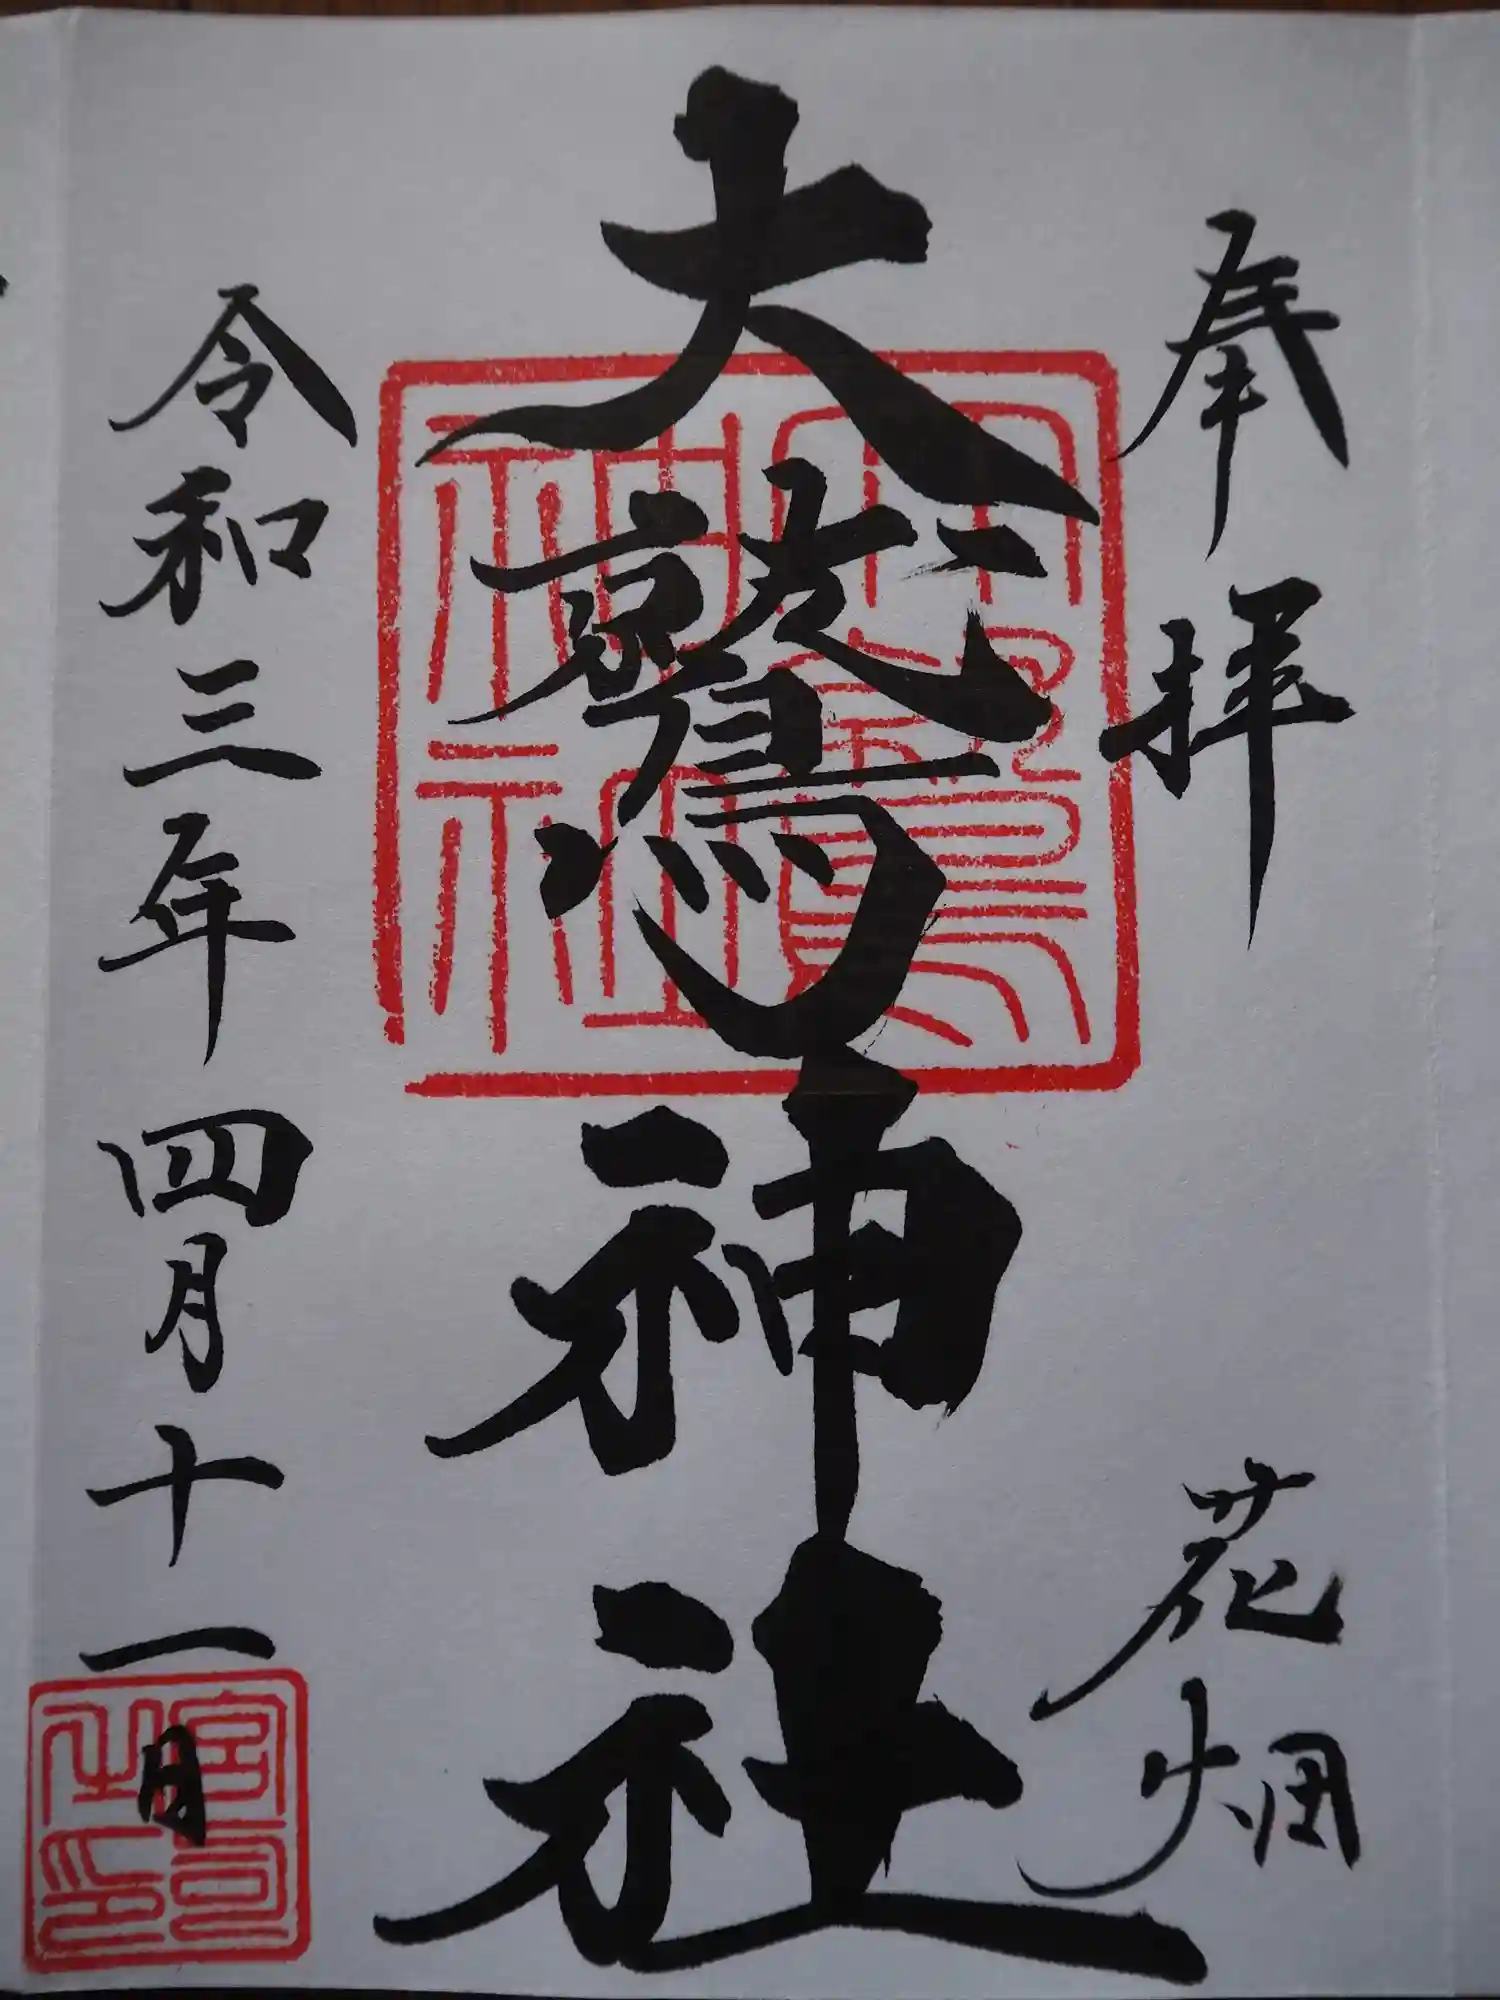 奉拝
花畑
大鷲神社
令和三年四月十一日
宮司之印